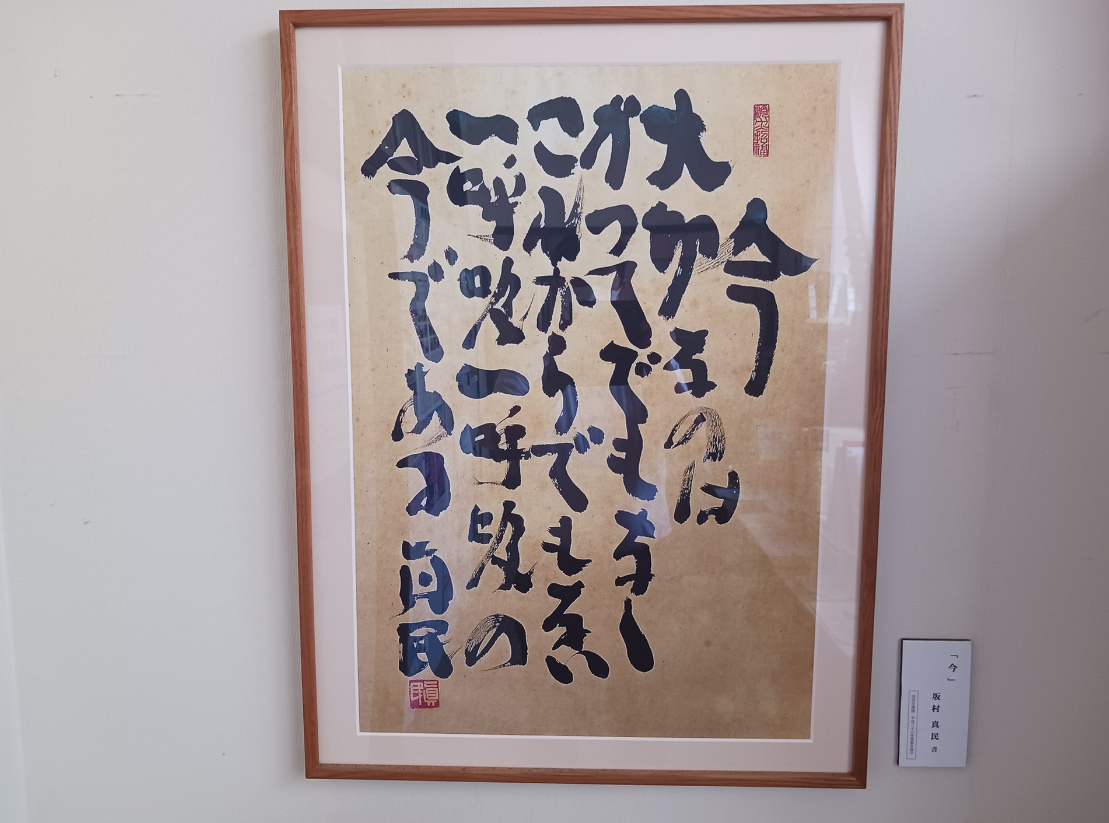 今
大切なのは
かつてでもなく
これからでもない
一呼吸一呼吸の
今である 真民
眞民
「今」
坂村 真民 書